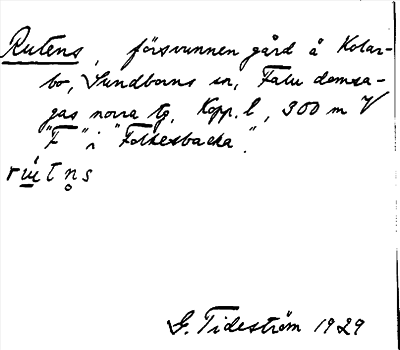 Rutens, försvunnen gård å Kolar-
bo, Sundborns sn, Falu domsa-
gas norra tg, Kopp. l, 300 m V
"F" i "Folkesbacka".
G. Tideström 1929